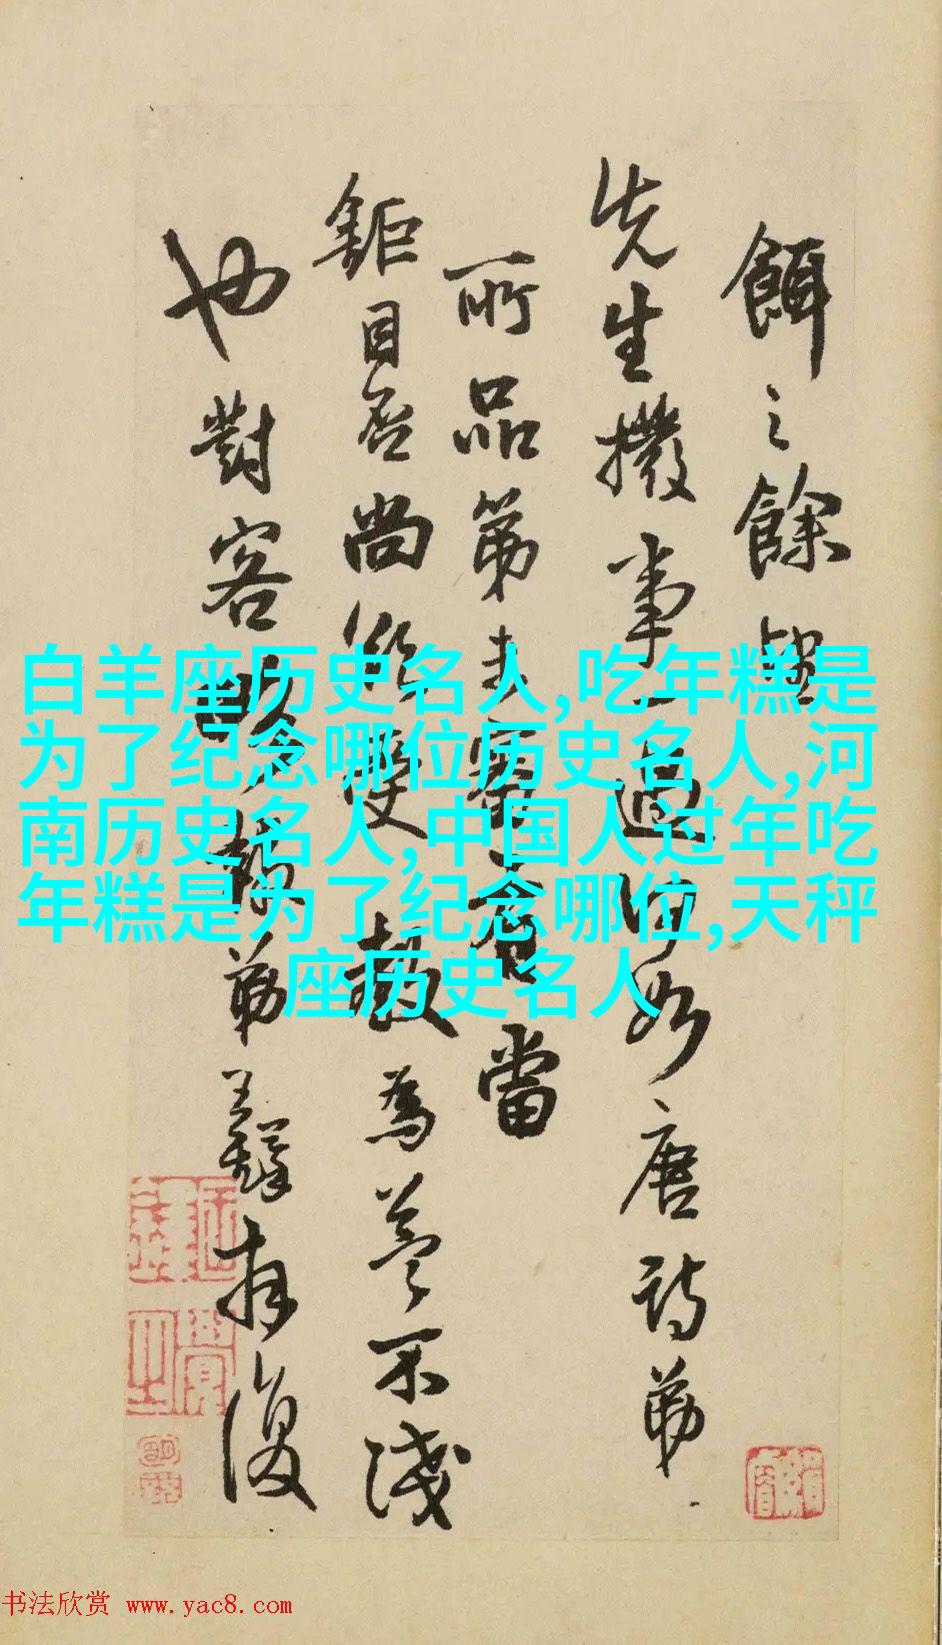 餌之餘
先生撥事一過何如唐詩第
所品第未審當
鉅目否尚教為不淺
也對客弟拜復
白羊座历史名人,吃年糕是
为了纪念哪位历史名人,河
南历史名人,中国人过年吃
年糕是为了纪念哪位,天秤
座历史名人
书法欣赏 www.yac8.com